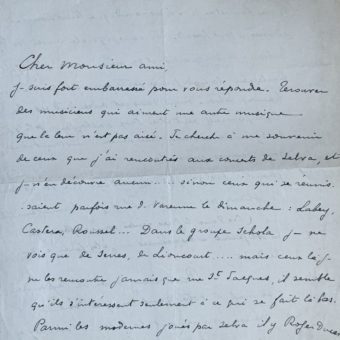 Cher Monsieur ami,
je suis fort embarrassé pour vous répondre. Trouver
des musiciens qui aiment une autre musique
que la leur n'est pas aisé. Je cherche à me souvenir
de ceux que j'ai rencontrés aux concerts de Selva, et
je n'en découvre aucun.... sinon ceux qui se réunis-
saient parfois rue d. Varenne le dimanche : Labey,
Castera, Roussel... Dans le groupe Schola je ne
vois que de Serres, de Lioncourt.... mais ceux là je
ne les rencontre jamais que rue St Jacques, il semble
qu'ils s'intéressent seulement à ce qui se fait là bas.
Parmi les modernes joués par Selva il y Roger Ducasse